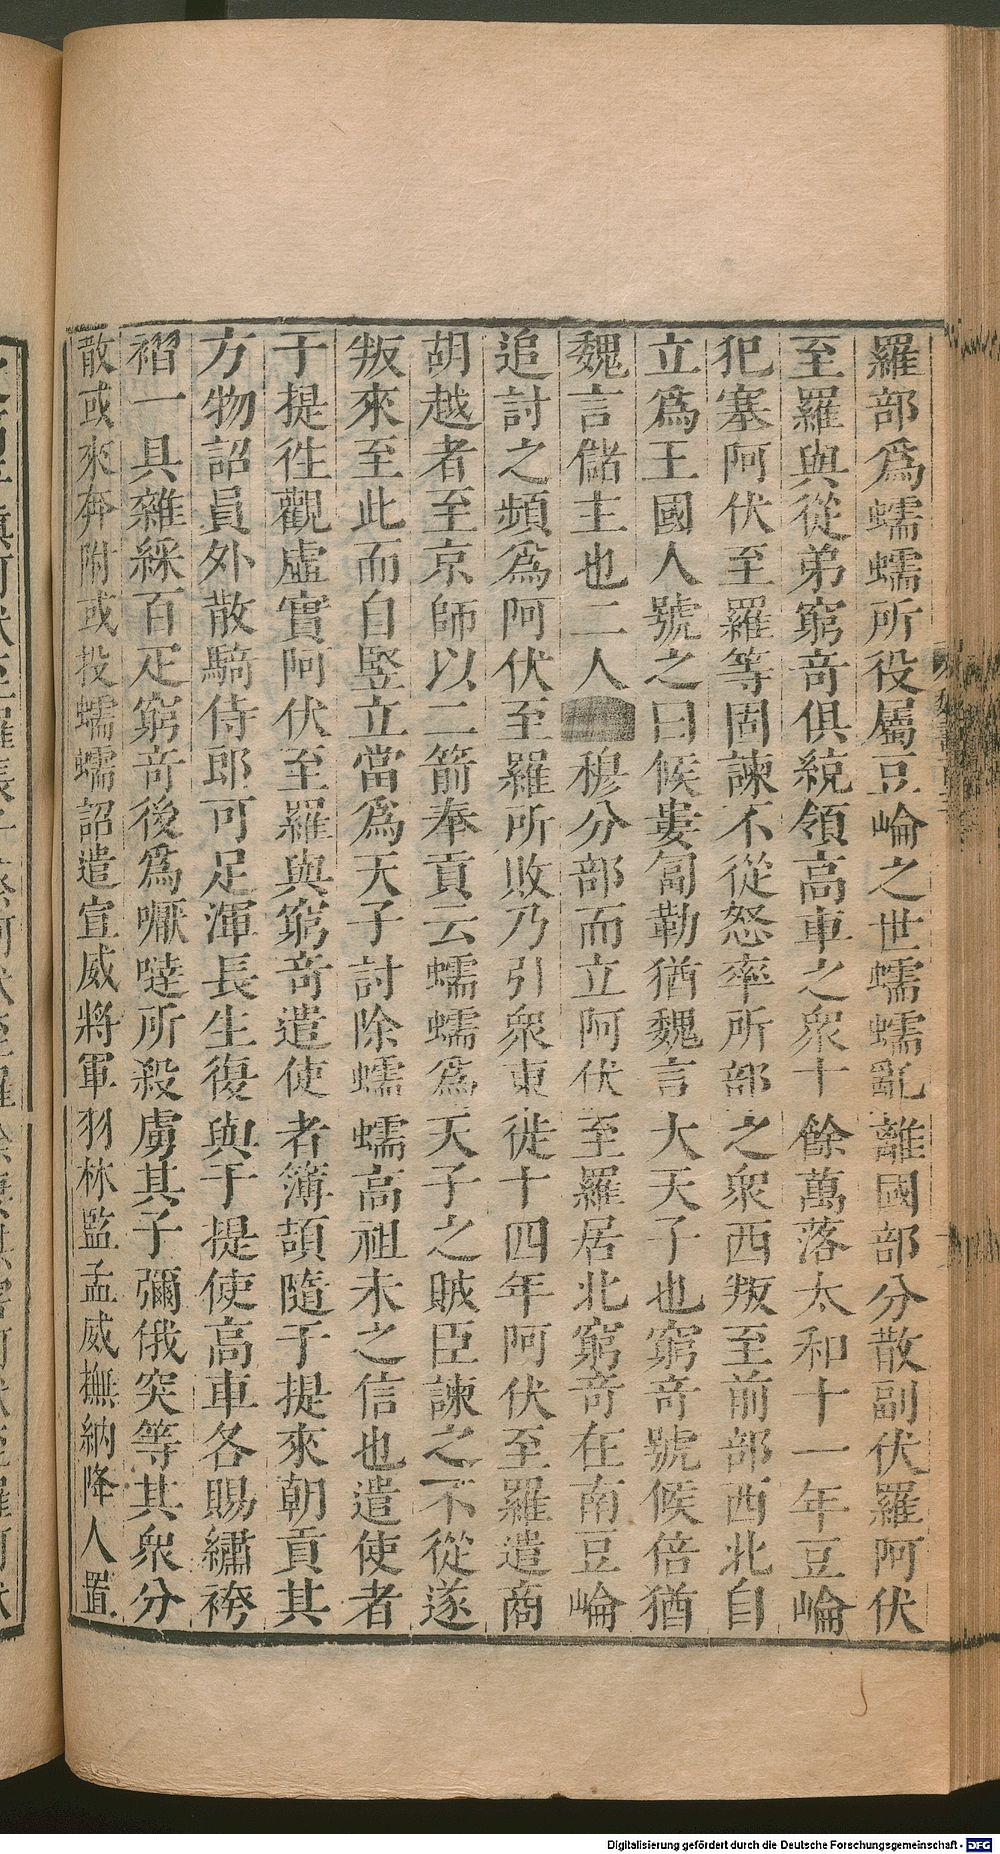 羅部爲蠕蠕所役屬豆崘之世蠕蠕亂離國部分散副伏羅阿伏
至羅與從弟窮奇俱統領高車之衆十餘萬落太和十一年豆崘
犯塞阿伏至羅等固諫不從怒率所部之衆西叛至前部西北自
立爲王國人號之曰候婁匐勒猶魏言大天子也窮奇號候倍猶
魏言儲主也二人穆分部而立阿伏至羅居北窮奇在南豆崘
追討之頻爲阿伏至羅所敗乃引衆東徙十四年阿伏至羅遣商
胡越者至京師以二箭奉貢云蠕蠕爲天子之賊臣諫之不從遂
叛來至此而自竪立當爲天子討除蠕蠕高祖未之信也遣使者
于提徃觀虛實阿伏至羅與窮奇遣使者簿頡隨于提來朝貢其
方物詔員外散騎侍郎可足渾長生復與于提使高車各賜繡袴
褶一具雜綵百疋窮奇後爲嚈噠所殺虜其子彌俄突等其衆分
散或來奔附或投蠕蠕詔遣宣威將軍羽林監孟威撫納降人置
Digitalisierung gefördert durch die Deutsche Forschungsgemeinschaft - DFG